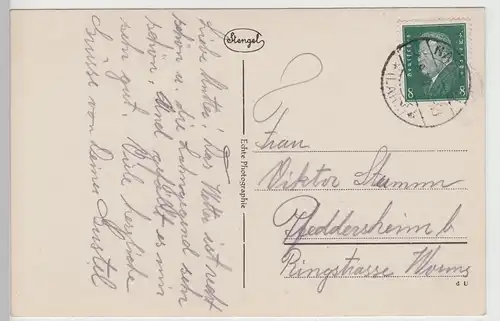 Stengel
Liebe Mutter! Das Wetter ist recht
schön u. die Lahngegend sehr
schön. Und gefällt es mir
sehr gut. Viele herzliche
Grüsse von Deiner Gustel
Echte Photographie
DEUTSCHES REICH
8 8
Frau
Viktor Stumm
Pfeddersheim b
Ringstrasse Worms
d U